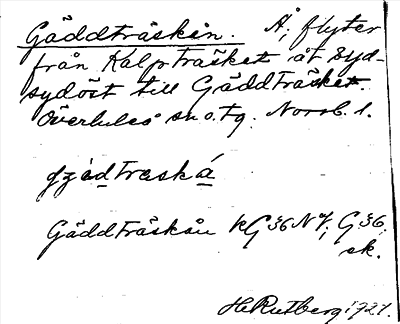 Gäddträskån. Å, flyter
från Kalpträsket åt syd-
sydöst till Gäddträsket.
Överluleå sn o. tg. Norrb. l.
Gäddträskån KG 36 NV, G 36,
ek.
H. Rutberg 1921.